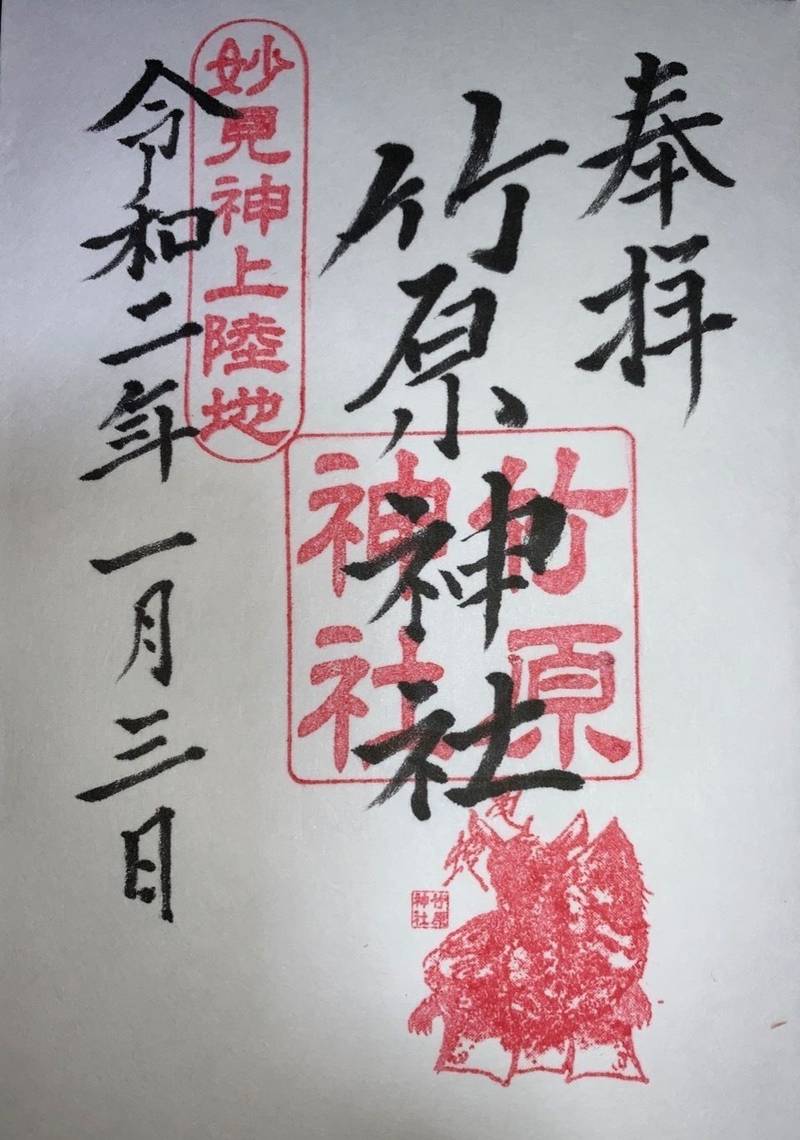 奉拝
竹原神社
竹原
神社
妙見神上陸地
令和二年一月三日
竹原
神社